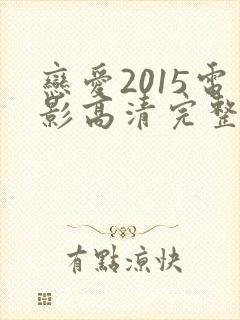 戀愛2015電
影高清完整
有點涼快